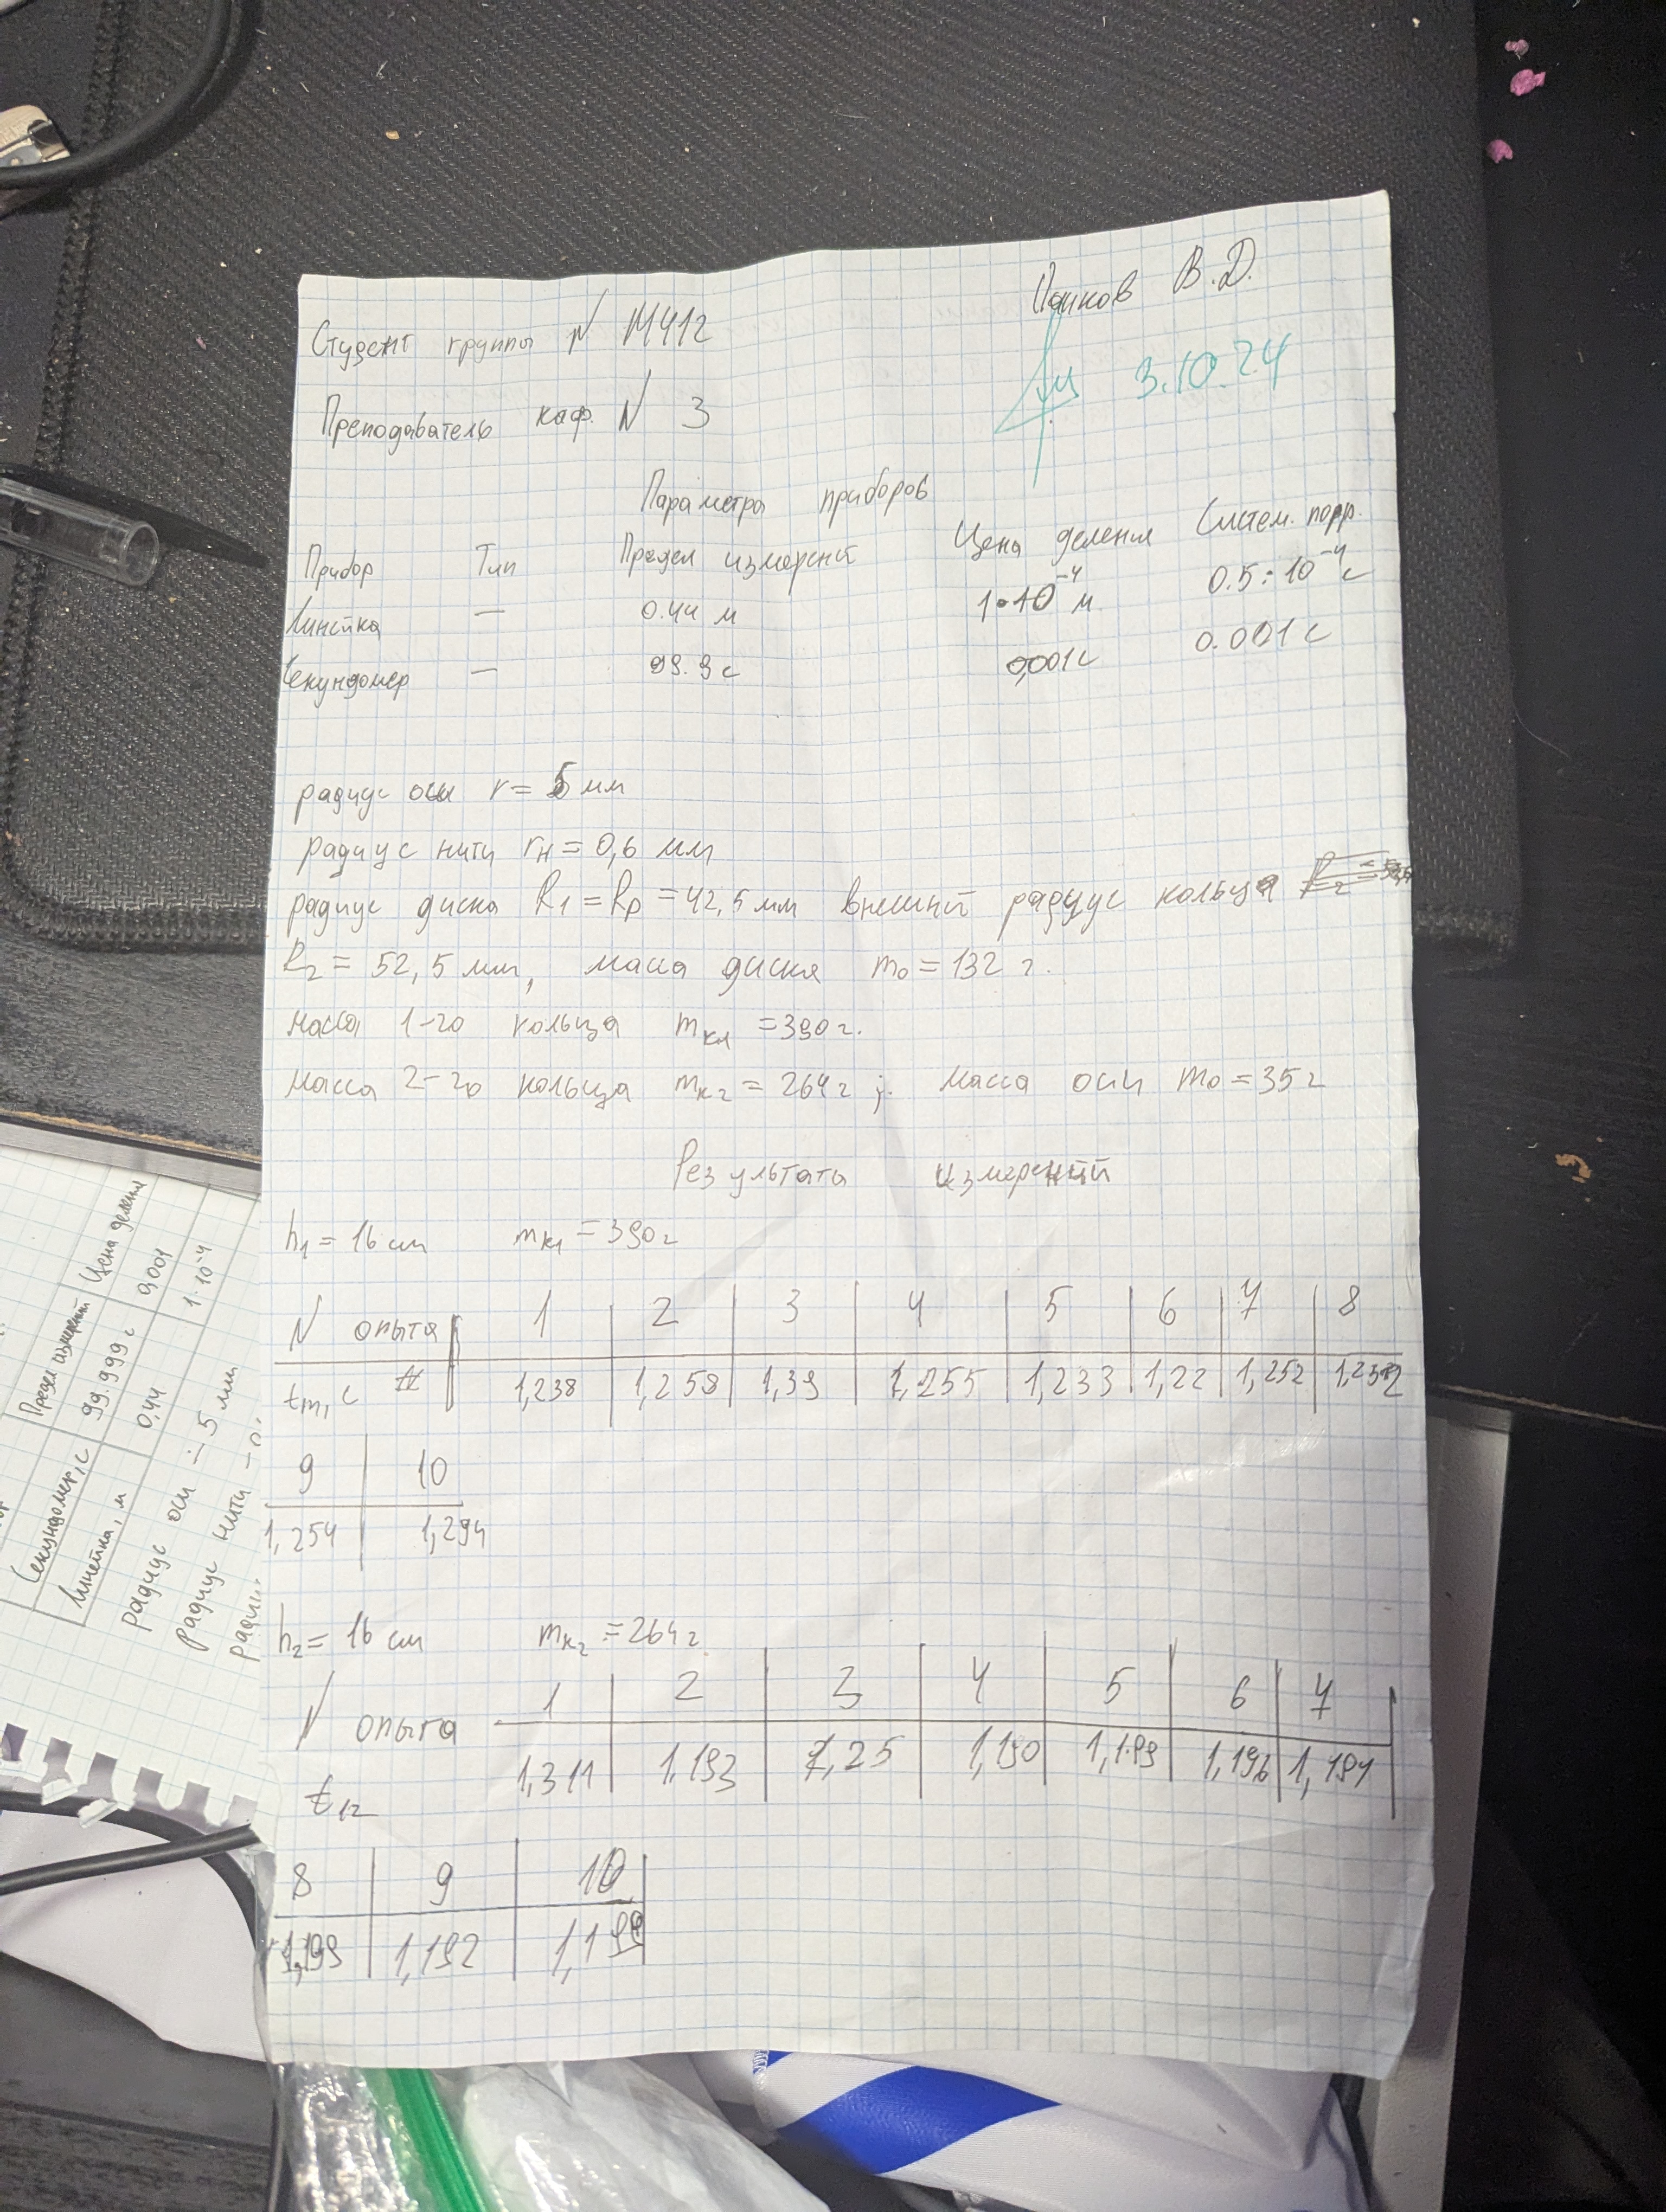 Студент группы N М412
Панков В.Д.
3.10.24
Преподаватель каф. N 3
Параметры приборов
Прибор Тип Предел измерений Цена деления Систем. погр.
Линейка — 0.44 м 1•10⁻⁴ м 0.5:10⁻⁴ с
Секундомер — 99.9 с 0,001 с 0.001 с
радиус оси r = 5 мм
радиус нити rн = 0,6 мм
радиус диска R1 = RD = 42,5 мм внешний радиус кольца
R2 = 52,5 мм, масса диска m0 = 132 г.
Масса 1-го кольца mк1 = 390 г.
Масса 2-го кольца mк2 = 264 г ; Масса оси m0 = 35 г
Результаты измерений
h1 = 16 см mк1 = 390 г
N опыта 1 2 3 4 5 6 7 8
tm, с 1,238 1,258 1,39 1,255 1,233 1,22 1,252
9 10
1,254 1,294
h2 = 16 см mк2 = 264 г
N опыта 1 2 3 4 5 6 7
1,311 1,193 1,25 1,190 1,199 1,196 1,191
8 9 10
1,199 1,192
Предел измерений Цена деления
Секундомер, с 99.999 с 0,001
Линейка, м 0,44 1·10⁻⁴
радиус оси – 5 мм
радиус нити –